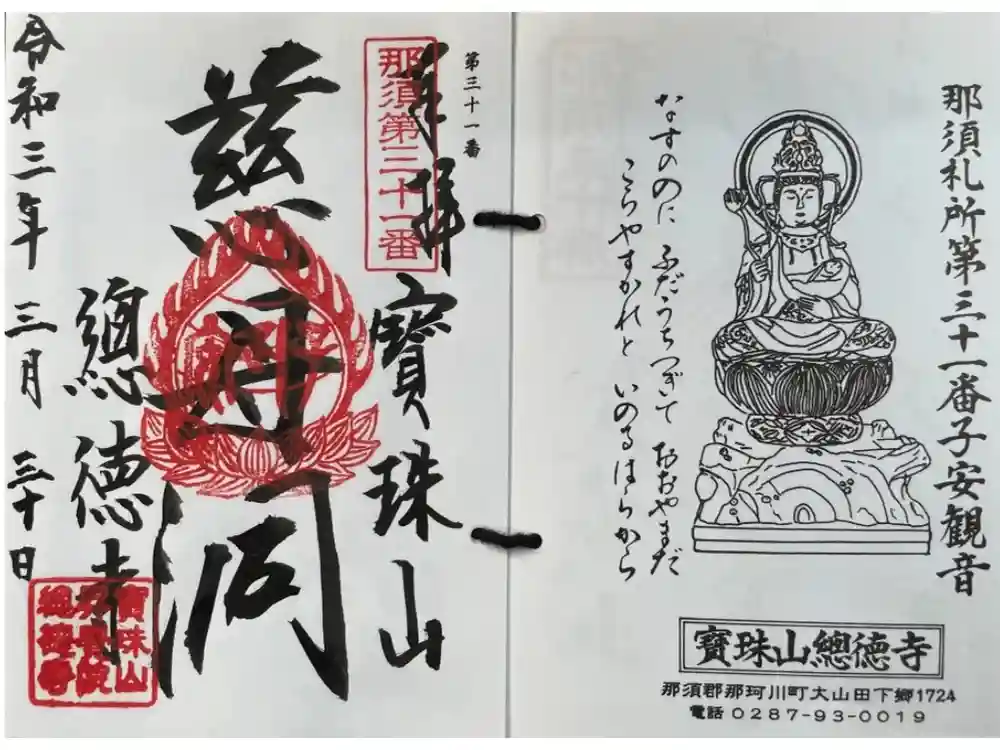 那須札所第三十一番子安観音
なすのに ふだうちつぎて おおやまだ
こらやすかれと いのるはらから
寶珠山總徳寺
那須郡那珂川町大山田下郷1724
電話 0287-93-0019
第三十一番
奉拝
那須第三十一番
寶珠山
慈母閣
總徳寺
令和三年 三月 三十日
寶珠山
總徳寺